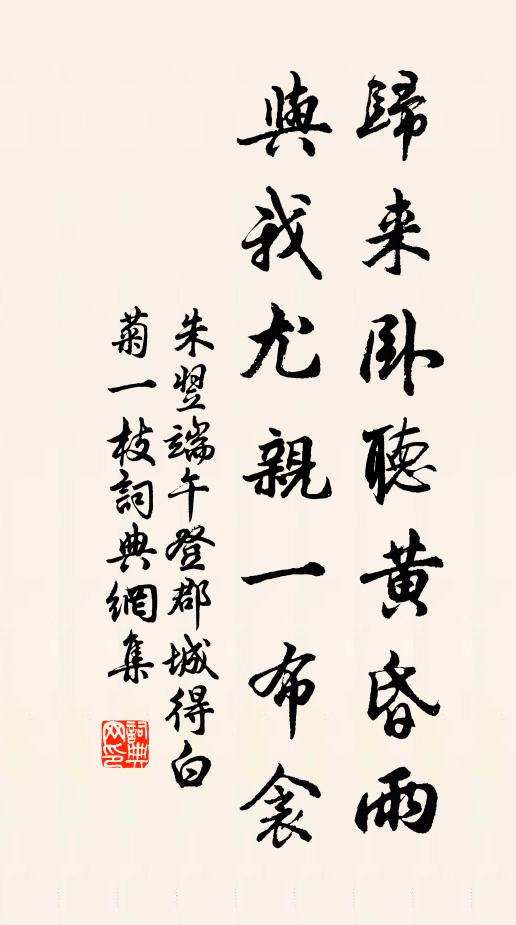 歸来卧聽黄昏雨
與我尤親一布衾
朱翌端午登郡城得白
菊一枝詞典網集
詞典
网印